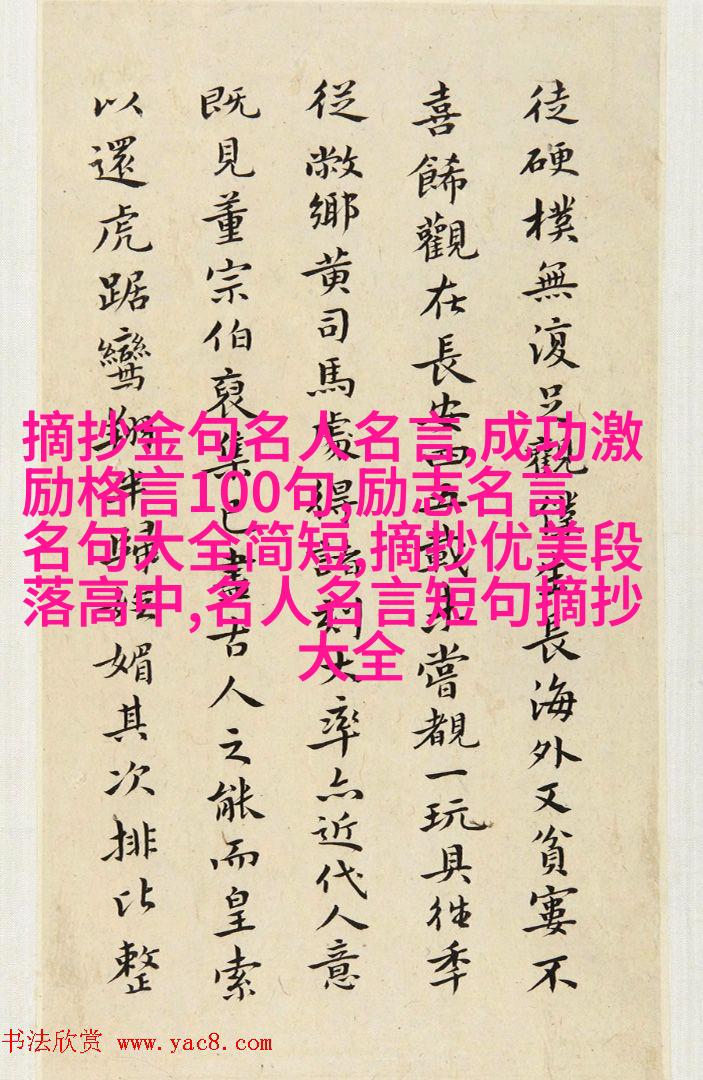 徒硬樸無復只觀僕生長海外又貧寠不
喜餙觀在長安四五載未嘗覩一玩具往季
從敝鄉黄司馬處得諸刻大率亦近代人意
既見董宗伯裒集已盡古人之能而皇索
以還虎踞鸞翔
媚其次排比整
摘抄金句名人名言,成功激
励格言100句,励志名言
名句大全简短,摘抄优美段
落高中,名人名言短句摘抄
大全
书法欣赏 www.yac8.com